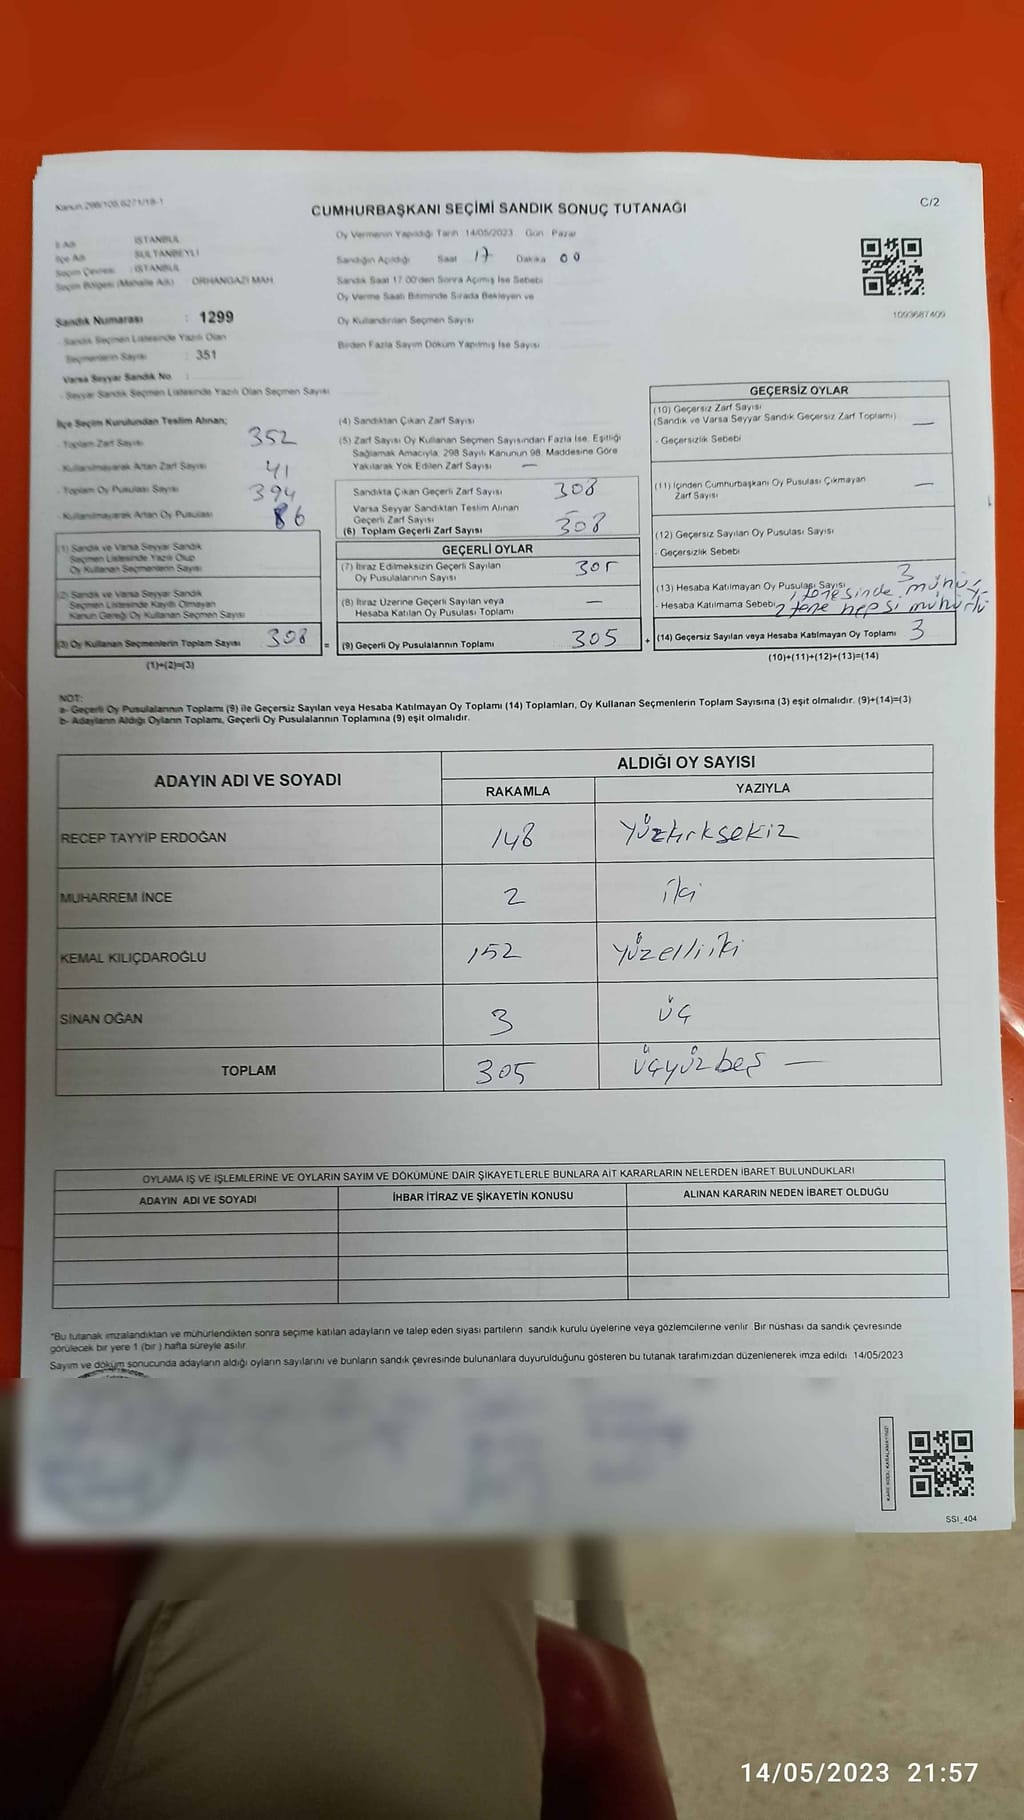 Kanun 298/105,6271/18-1
CUMHURBAŞKANI SEÇİMİ SANDIK SONUÇ TUTANAĞI
C/2
İl Adı : İSTANBUL
İlçe Adı : SULTANBEYLİ
Seçim Çevresi : İSTANBUL
Seçim Bölgesi (Mahalle Adı) : ORHANGAZİ MAH
Sandık Numarası : 1299
- Sandık Seçmen Listesinde Yazılı Olan
Seçmenlerin Sayısı : 351
Varsa Seyyar Sandık No :
- Seyyar Sandık Seçmen Listesinde Yazılı Olan Seçmen Sayısı
Oy Vermenin Yapıldığı Tarih 14/05/2023 Gün Pazar
Sandığın Açıldığı Saat 17 Dakika 00
Sandık Saat 17.00'den Sonra Açılmış İse Sebebi
Oy Verme Saati Bitiminde Sırada Bekleyen ve
Oy Kullandırılan Seçmen Sayısı
Birden Fazla Sayım Döküm Yapılmış İse Sayısı
1093687409
İlçe Seçim Kurulundan Teslim Alınan;
- Toplam Zarf Sayısı 352
- Kullanılmayarak Artan Zarf Sayısı 41
- Toplam Oy Pusulası Sayısı 394
- Kullanılmayarak Artan Oy Pusulası 86
(1) Sandık ve Varsa Seyyar Sandık
Seçmen Listesinde Yazılı Olup
Oy Kullanan Seçmenlerin Sayısı
(2) Sandık ve Varsa Seyyar Sandık
Seçmen Listesinde Kayıtlı Olmayan
Kanun Gereği Oy Kullanan Seçmen Sayısı
(3) Oy Kullanan Seçmenlerin Toplam Sayısı 308
(1)+(2)=(3)
(4) Sandıktan Çıkan Zarf Sayısı
(5) Zarf Sayısı Oy Kullanan Seçmen Sayısından Fazla İse, Eşitliği
Sağlamak Amacıyla, 298 Sayılı Kanunun 98. Maddesine Göre
Yakılarak Yok Edilen Zarf Sayısı —
Sandıkta Çıkan Geçerli Zarf Sayısı 308
Varsa Seyyar Sandıktan Teslim Alınan
Geçerli Zarf Sayısı
(6) Toplam Geçerli Zarf Sayısı 308
GEÇERLİ OYLAR
(7) İtiraz Edilmeksizin Geçerli Sayılan
Oy Pusulalarının Sayısı 305
(8) İtiraz Üzerine Geçerli Sayılan veya
Hesaba Katılan Oy Pusulası Toplamı —
= (9) Geçerli Oy Pusulalarının Toplamı 305 +
GEÇERSİZ OYLAR
(10) Geçersiz Zarf Sayısı
(Sandık ve Varsa Seyyar Sandık Geçersiz Zarf Toplamı) —
- Geçersizlik Sebebi
(11) İçinden Cumhurbaşkanı Oy Pusulası Çıkmayan
Zarf Sayısı —
(12) Geçersiz Sayılan Oy Pusulası Sayısı
- Geçersizlik Sebebi
(13) Hesaba Katılmayan Oy Pusulası Sayısı 3
- Hesaba Katılmama Sebebi 1 tanesinde mühür
2 tane hepsi mühürlü
(14) Geçersiz Sayılan veya Hesaba Katılmayan Oy Toplamı 3
(10)+(11)+(12)+(13)=(14)
NOT:
a- Geçerli Oy Pusulalarının Toplamı (9) ile Geçersiz Sayılan veya Hesaba Katılmayan Oy Toplamı (14) Toplamları, Oy Kullanan Seçmenlerin Toplam Sayısına (3) eşit olmalıdır. (9)+(14)=(3)
b- Adayların Aldığı Oyların Toplamı, Geçerli Oy Pusulalarının Toplamına (9) eşit olmalıdır.
ADAYIN ADI VE SOYADI
ALDIĞI OY SAYISI
RAKAMLA YAZIYLA
RECEP TAYYİP ERDOĞAN 148 Yüzkırksekiz
MUHARREM İNCE 2 iki
KEMAL KILIÇDAROĞLU 152 Yüzelliiki
SİNAN OĞAN 3 üç
TOPLAM 305 üçyüzbeş —
OYLAMA İŞ VE İŞLEMLERİNE VE OYLARIN SAYIM VE DÖKÜMÜNE DAİR ŞİKAYETLERLE BUNLARA AİT KARARLARIN NELERDEN İBARET BULUNDUKLARI
ADAYIN ADI VE SOYADI İHBAR İTİRAZ VE ŞİKAYETİN KONUSU ALINAN KARARIN NEDEN İBARET OLDUĞU
*Bu tutanak imzalandıktan ve mühürlendikten sonra seçime katılan adayların ve talep eden siyasi partilerin sandık kurulu üyelerine veya gözlemcilerine verilir. Bir nüshası da sandık çevresinde
görülecek bir yere 1 (bir ) hafta süreyle asılır.
Sayım ve döküm sonucunda adayların aldığı oyların sayılarını ve bunların sandık çevresinde bulunanlara duyurulduğunu gösteren bu tutanak tarafımızdan düzenlenerek imza edildi. 14/05/2023
KARE KODU KARALAMAYINIZ!
SSI_404
14/05/2023 21:57